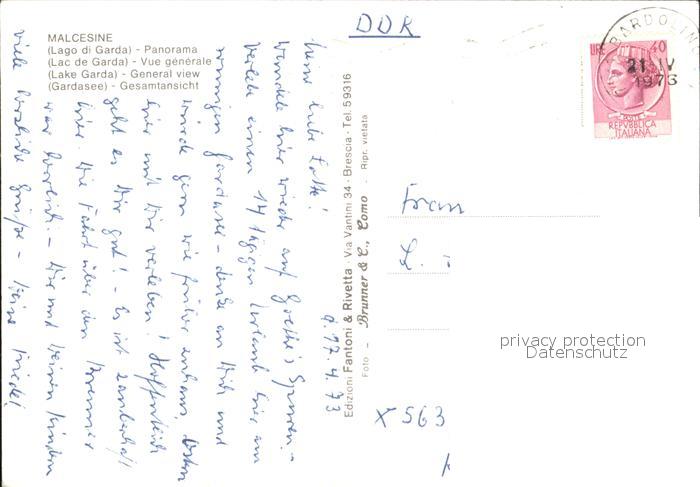 MALCESINE
(Lago di Garda) - Panorama
(Lac de Garda) - Vue générale
(Lake Garda) - General view
(Gardasee) - Gesamtansicht
DDR
BARDOLINO
21 IV
1973
LIRE 40
POSTE
REPVBBLICA
ITALIANA
d. 17.4.73
Meine liebe Lotte!
Wandele hier wieder auf Goethe's Spuren -
verlebe einen 14 tägigen Urlaub hier am
sonnigen Gardasee - denke an Dich und
würde gern wie früher einmal Ostern
hier mit Dir verleben! Hoffentlich
geht es Dir gut! - Es ist zauberhaft
hier. Die Fahrt über den Brenner
war herrlich. - Dir und Deinen Kindern
viele herzliche Grüße - Deine Friedel
Edizioni Fantoni & Rivetta - Via Vantini 34 - Brescia - Tel. 59316
Foto - Brunner & C., Como - Ripr. vietata
Frau
L.
privacy protection
Datenschutz
X 563